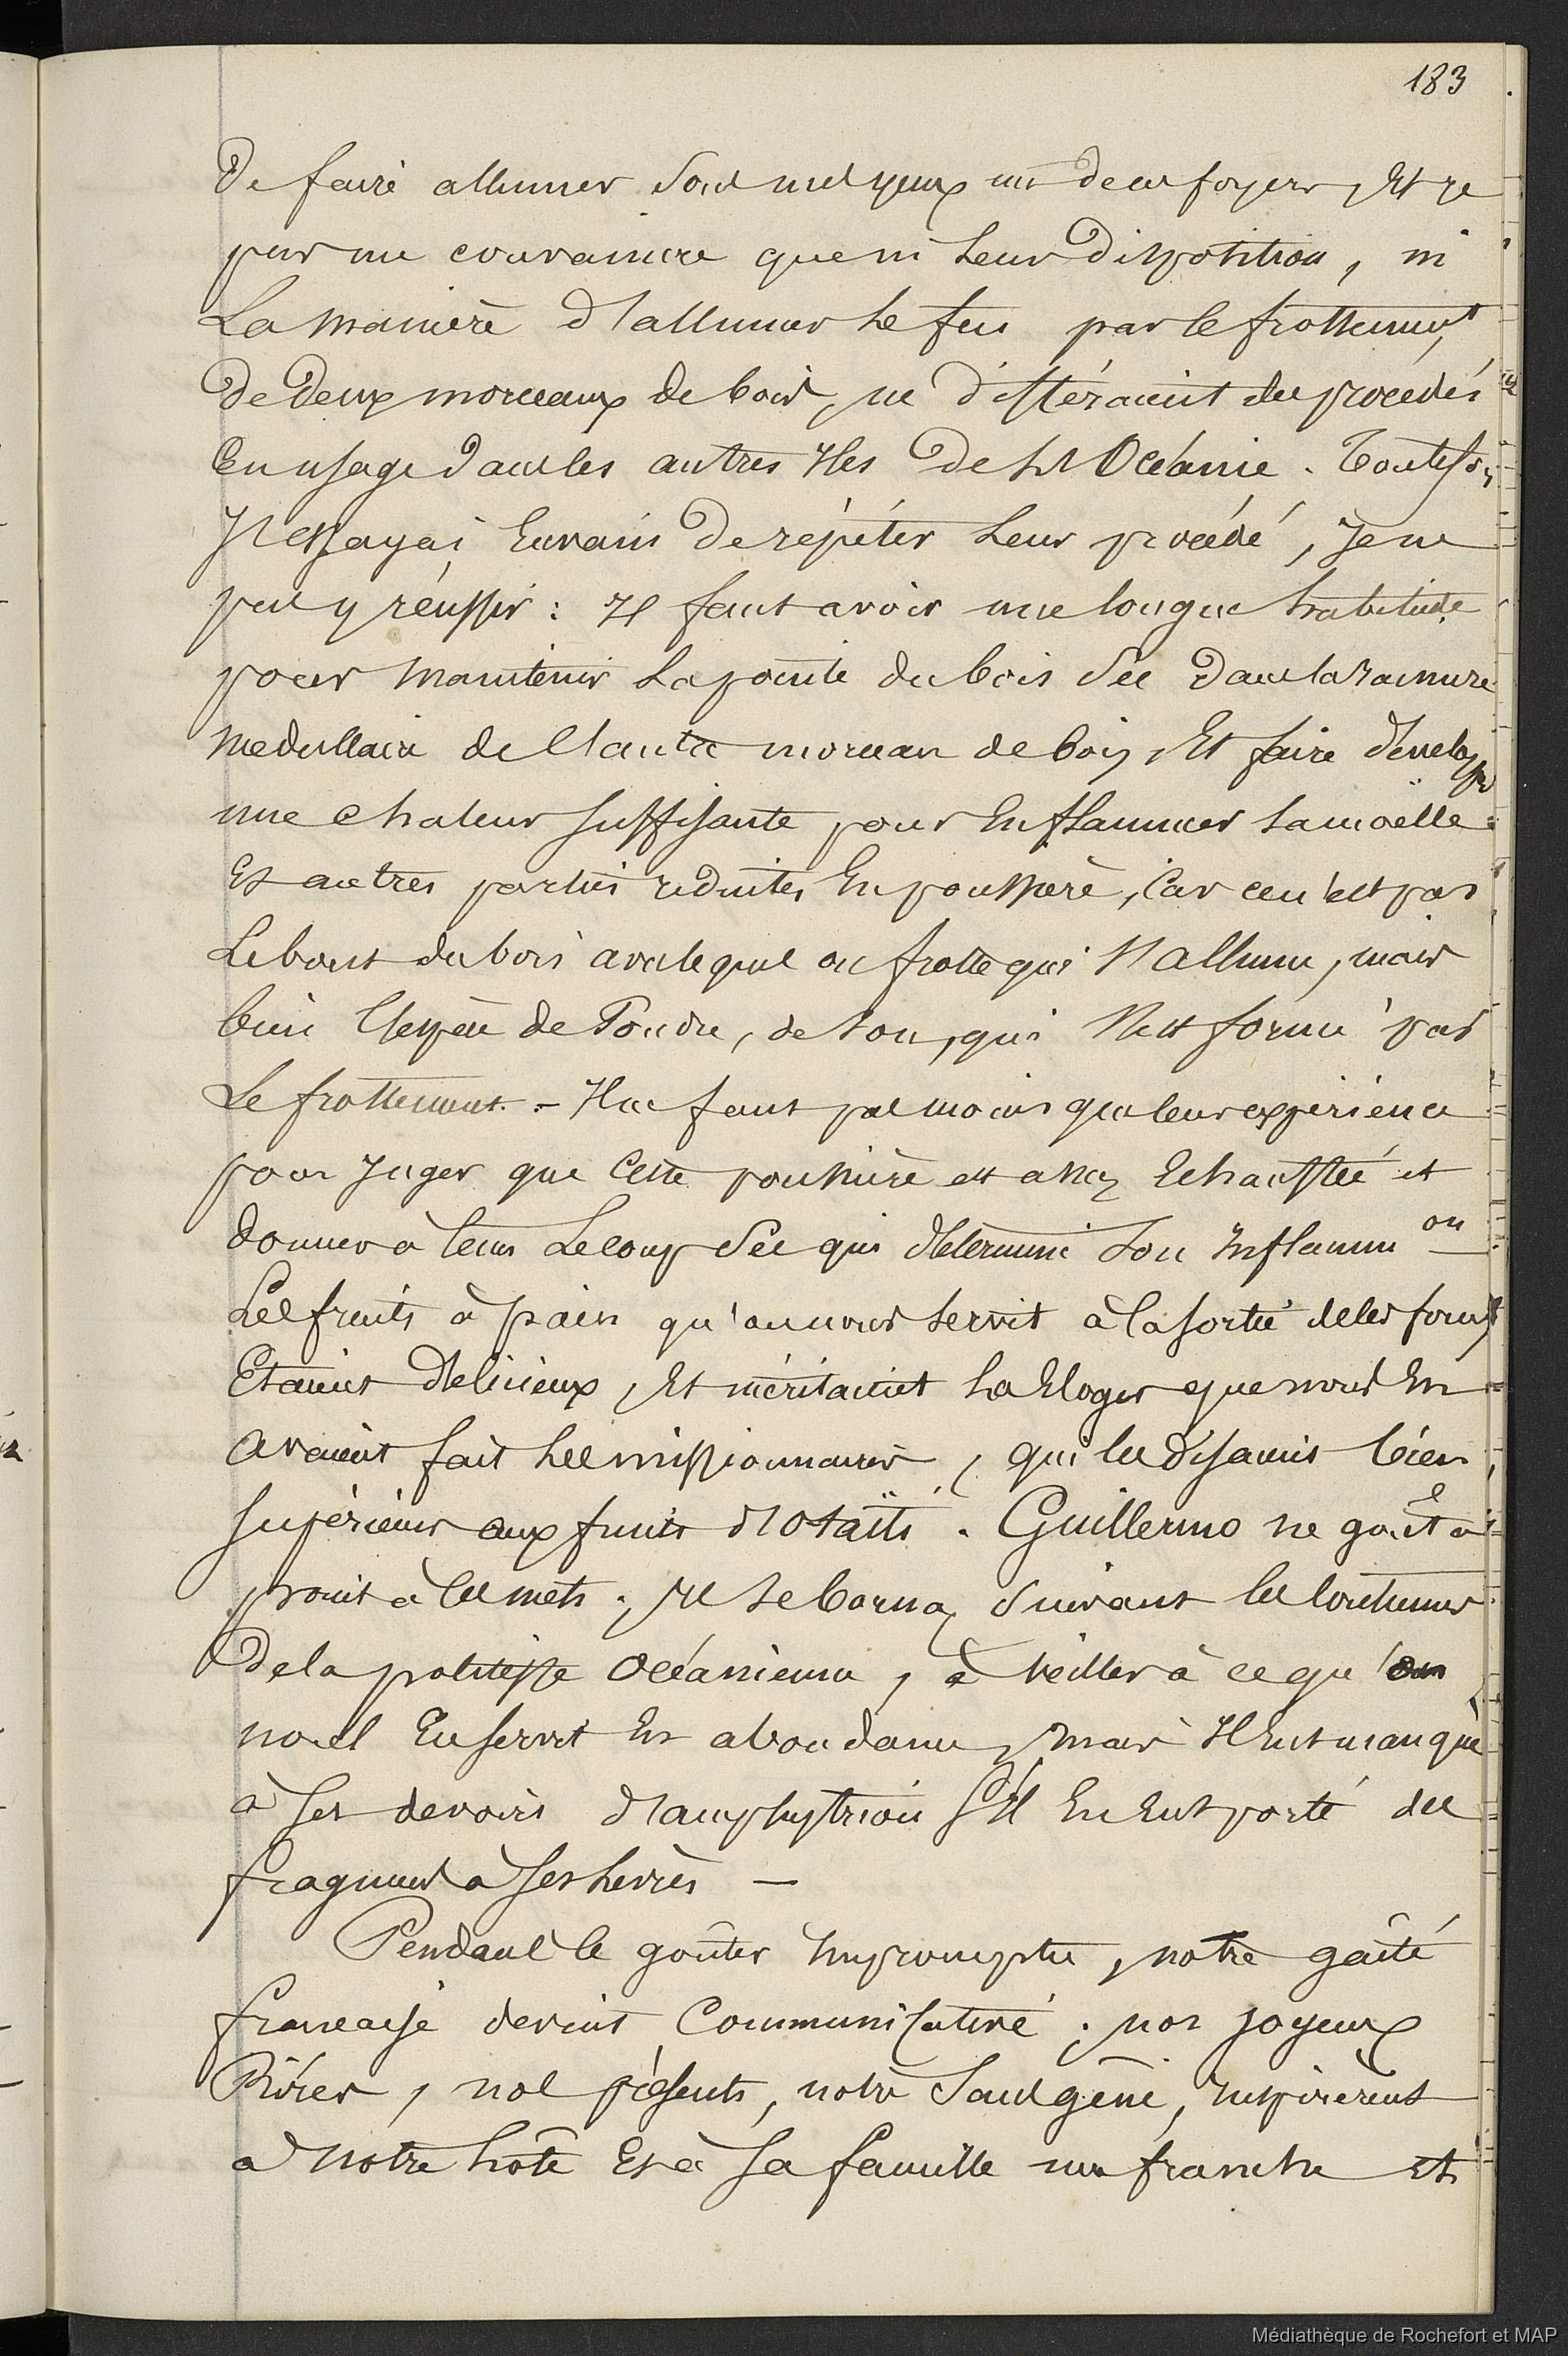 183
De faire allumer sous mes yeux un de ces foyers, Et je
pus me convaincre que ni Leur Disposition, ni
La manière d'allumer Le feu par le frottement
De Deux morceaux de bois, ne différaient des procédés
En usage dans les autres Iles De L'Océanie. Toutefois
J'essayai Envain De répéter Leur procédé, Je ne
pus y réussir : Il faut avoir une longue habitude
pour Maintenir La pointe du bois sec Dans la rainure
Medullaire de l'autre morceau de bois, Et faire développer
une chaleur suffisante pour Enflammer la moëlle
Et autres parties réduites En poussière, Car ce n'est pas
Le bout du bois avec lequel on frotte qui s'allume, mais
bien l'espèce de Poudre, de son, qui s'est formé par
Le frottement. - Il ne faut pas moins que leur expérience
pour Juger que Cette poussière est assez Echauffée et
donner à tems Le coup sec qui détermine son Inflamm on
Les fruits à pain qu'on nous servit à la sortie de les fours
Etaient délicieux, Et méritaient les Eloges que nous En
avaient fait les missionnaires, qui les disaient bien
supérieurs aux fruits d'Otaïti. Guillermo ne goûta
point à ces mets ; Il se borna, suivant les coutumes
De la politesse Océanienne, à veiller à ce qu'on
nous En servit En abondance, mais Il Eut manqué
à ses devoirs d'amphytrion s'Il En Eut porté des
fragmens à ses lèvres —
Pendant le goûter Impromptu, notre gaîté
française devint Communicative ; nos joyeux
Rires, nos présents, notre Sans gêne, Inspirèrent
à Notre hôte Et à sa famille une franche et
Médiathèque de Rochefort et MAP